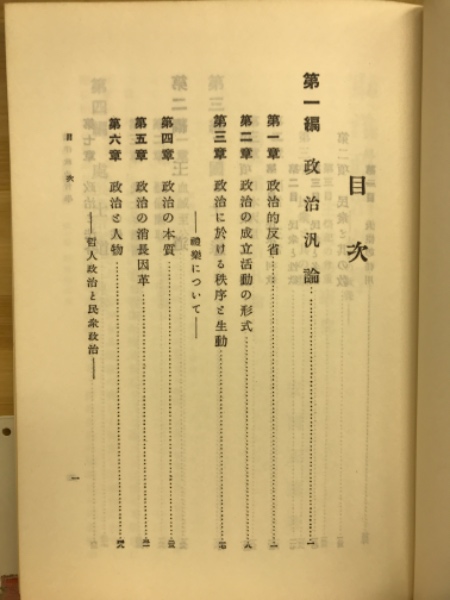 目次
第一編 政治汎論……一
第一章 政治的反省……一
第二章 政治の成立活動の形式……八
第三章 政治に於ける秩序と生動……
——禮樂について——
第四章 政治の本質……
第五章 政治の消長因革……
第六章 政治と人物……
——哲人政治と民衆政治——
目次
一